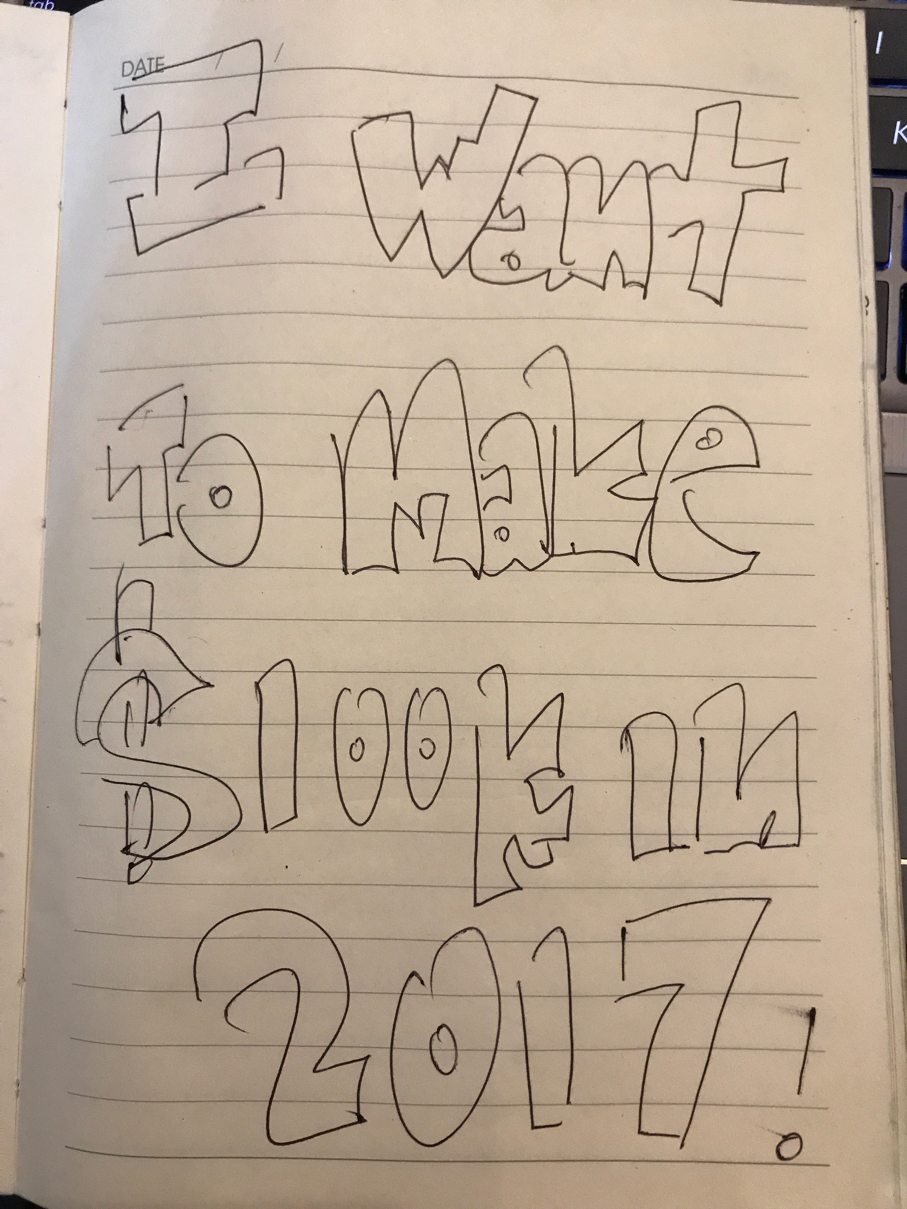 tab
DATE / /
I Want
To Make
$100k in
2017!
l
K